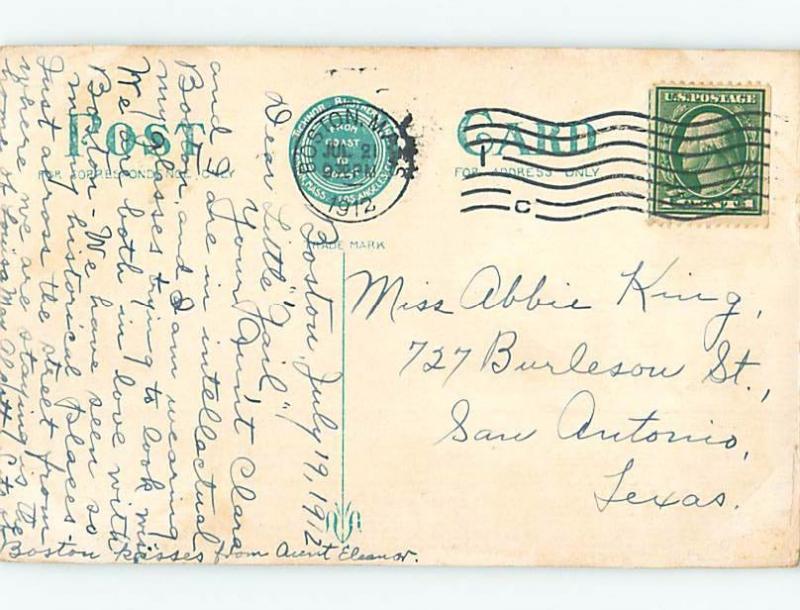 POST CARD
FOR CORRESPONDENCE ONLY
FOR ADDRESS ONLY
TRADE MARK
BOSTON, MA
JUL 21
PM
1912
FROM
COAST
TO
LOS ANGELES
C
U.S. POSTAGE
Boston, July 19, 1912
Dear Little "Nail",
Your Aun't Clara
and I are in intellactual
Boston, and I am wearing
my glasses trying to look wise
We are both in love with
Boston - We have seen so
many historical places.
Just across the street from
where we are staying is the
home of Louisa May Alcott.
Boston kisses from Aunt Eleanor.
Miss Abbie King,
727 Burleson St.,
San Antonio,
Texas.